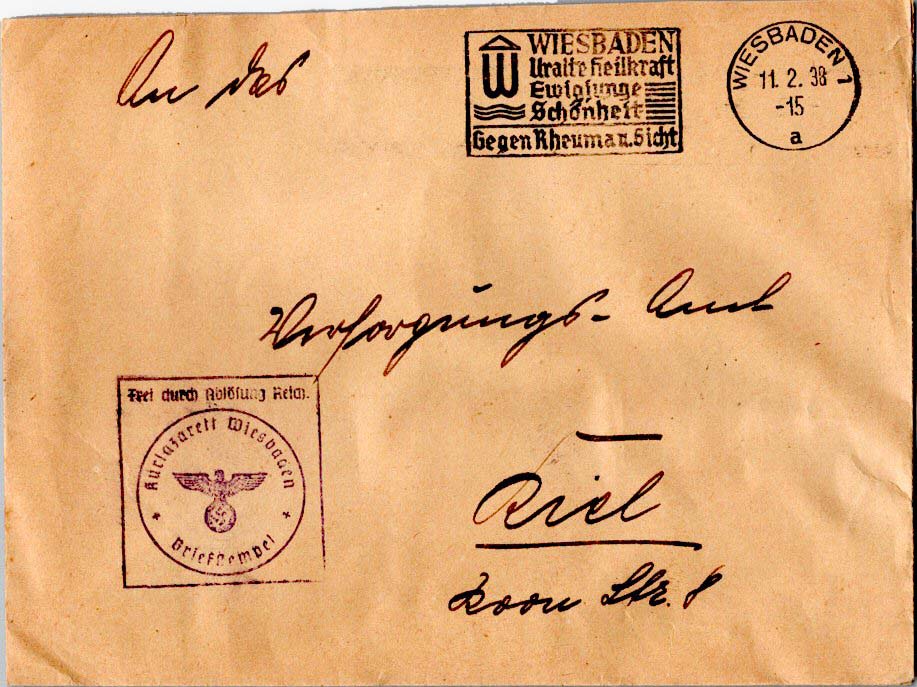 An das
WIESBADEN
Uralte Heilkraft
Ewigjunge
Schönheit
Gegen Rheuma u. Gicht
WIESBADEN 1
11. 2. 38
-15-
a
Versorgungs-Amt
Frei durch Ablösung Reich.
Kurlazarett Wiesbaden
Briefstempel
Kiel
Roon Str. 8